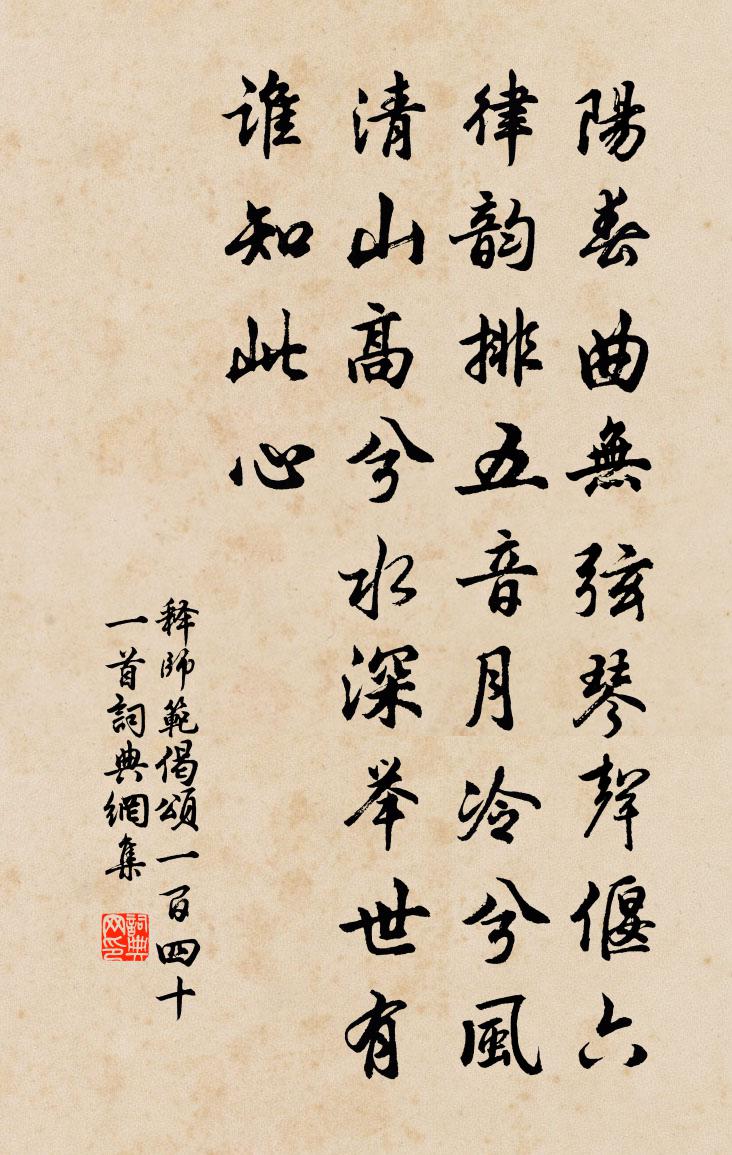 陽春曲無弦琴聲偃六
律韵排五音月冷兮風
清山高兮水深举世有
誰知此心
释師範偈頌一百四十
一首詞典網集
詞典网印